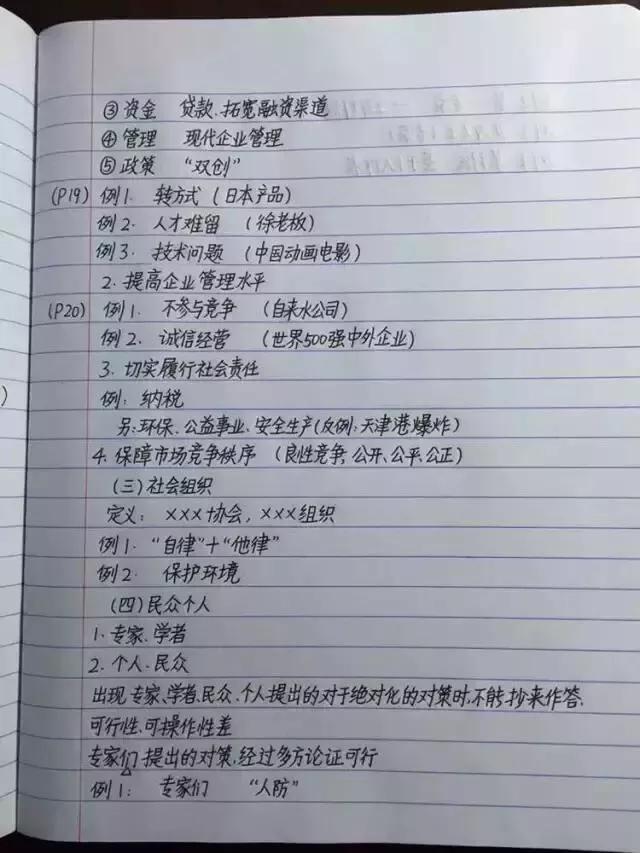 ③资金 贷款、拓宽融资渠道
④管理 现代企业管理
⑤政策 “双创”
(P19) 例1. 转方式 (日本产品)
例2. 人才难留 (徐老板)
例3. 技术问题 (中国动画电影)
2. 提高企业管理水平
(P20) 例1. 不参与竞争 (自来水公司)
例2. 诚信经营 (世界500强中外企业)
3. 切实履行社会责任
例: 纳税
另:环保、公益事业、安全生产(反例:天津港爆炸)
4. 保障市场竞争秩序 (良性竞争,公开、公平、公正)
(三)社会组织
定义: ×××协会, ×××组织
例1. “自律”+“他律”
例2. 保护环境
(四)民众个人
1. 专家、学者
2. 个人、民众
出现 专家、学者、民众、个人提出的对于绝对化的对策时,不能抄来作答.
可行性、可操作性差
专家们提出的对策,经过多方论证可行
例1: 专家们 “人防”